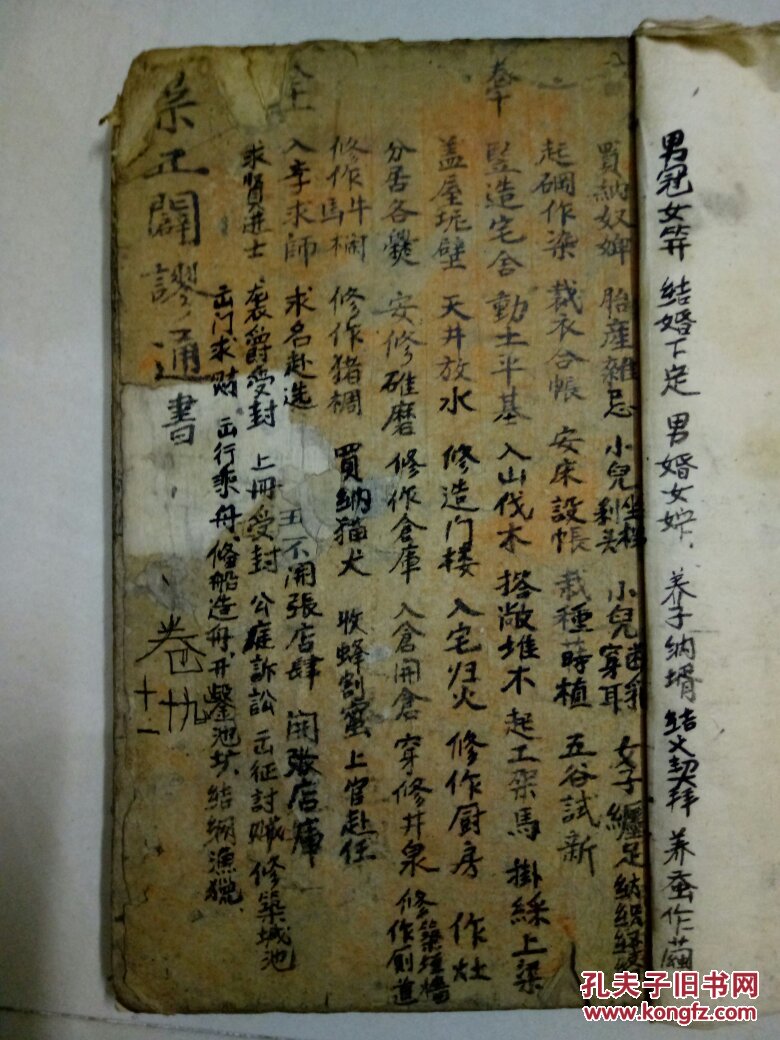 男冠女笄 結婚下定 男婚女嫁 养子纳壻 结义契拜 养蚕作繭
買納奴婢 胎産雜忌 小兒剃头 小兒穿耳 女子纏足
起硐作染 裁衣合帳 安床設帳 栽種蒔植 五谷試新
卷十
竪造宅舍 動土平基 入山伐木 搭厰堆木 起工架馬 掛綵上梁
盖屋坭壁 天井放水 修造门楼 入宅归火 修作厨房 作灶
分居各爨 安修碓磨 修作倉庫 入倉開倉 穿修井泉 修築垣墻 修作厠道
修作牛馬欄 修作猪椆 買納猫犬 收蜂割蜜 上官赴任
入李求師 求名赴选 王不開張店肆 開張店庫
求賢进士 袭爵受封 上冊受封 公庭訴訟 出征討 修築城池
出门求财 出行乘舟 修船造舟 开鑿池圹 结網漁獵
正闢謬通書
卷九
十一
孔夫子旧书网
www.kongfz.com